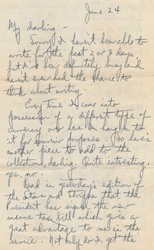 June 24
My darling -
Sorry I haven't been able to
write for the past 2 or 3 days
but I've been definitely busy and
haven't even had the chance to
think about writing.
Every time I come into
possession of a different type of
currency
it for souvenir purposes. So here's
another piece to add to the
collection, darling. Quite interesting.
yes, no.
Read in yesterday's edition of
the Stars and Stripes that the
President has signed the new
income tax bill which gives a
great advantage to men in the
service. Not only do I get the